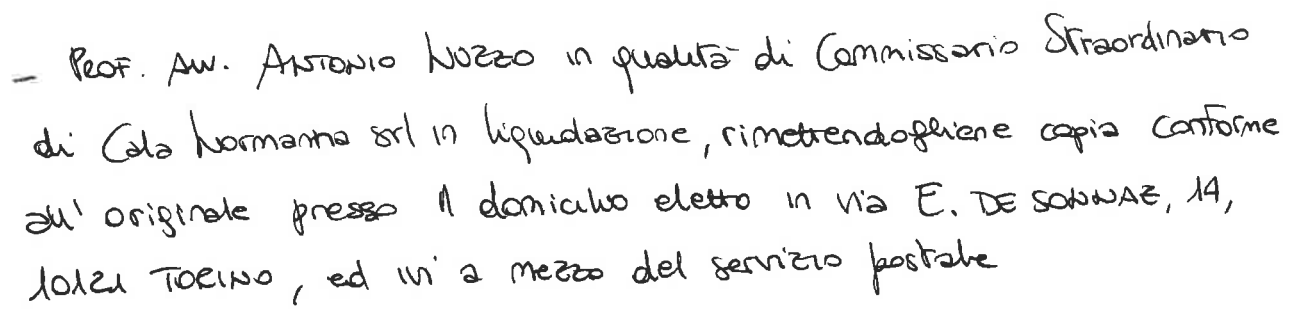 - PROF. AVV. ANTONIO NUZZO in qualità di Commissario Straordinario
di Cala Normanna srl in liquidazione, rimettendogliene copia conforme
all' originale presso il domicilio eletto in via E. DE SONNAZ, 14,
10121 TORINO, ed ivi a mezzo del servizio postale